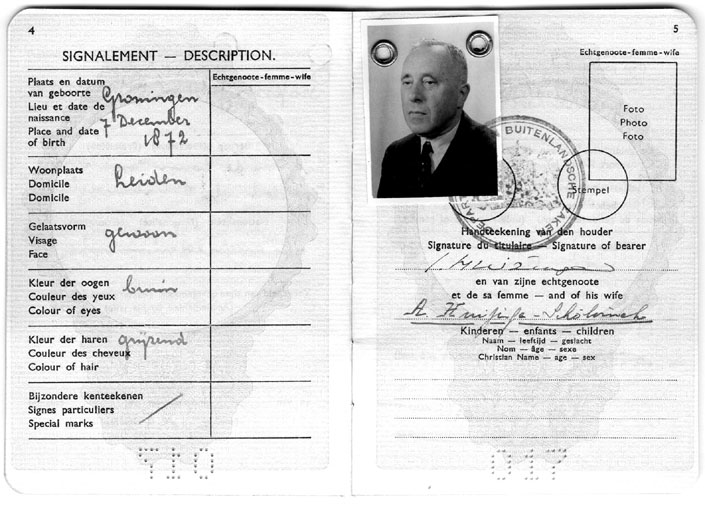 4
SIGNALEMENT — DESCRIPTION.
Echtgenoote-femme-wife
Plaats en datum
van geboorte
Lieu et date de
naissance
Place and date
of birth
Groningen
7 December
1872
Woonplaats
Domicile
Domicile
Leiden
Gelaatsvorm
Visage
Face
gewoon
Kleur der oogen
Couleur des yeux
Colour of eyes
bruin
Kleur der haren
Couleur des cheveux
Colour of hair
grijzend
Bijzondere kenteekenen
Signes particuliers
Special marks
5
Echtgenoote-femme-wife
Foto
Photo
Foto
BUITENLANDSCHE
Stempel
Handteekening van den houder
Signature du titulaire — Signature of bearer
en van zijne echtgenoote
et de sa femme — and of his wife
A. Huizinga-Schölvinck
Kinderen — enfants — children
Naam — leeftijd — geslacht
Nom — âge — sexe
Christian Name — age — sex
017